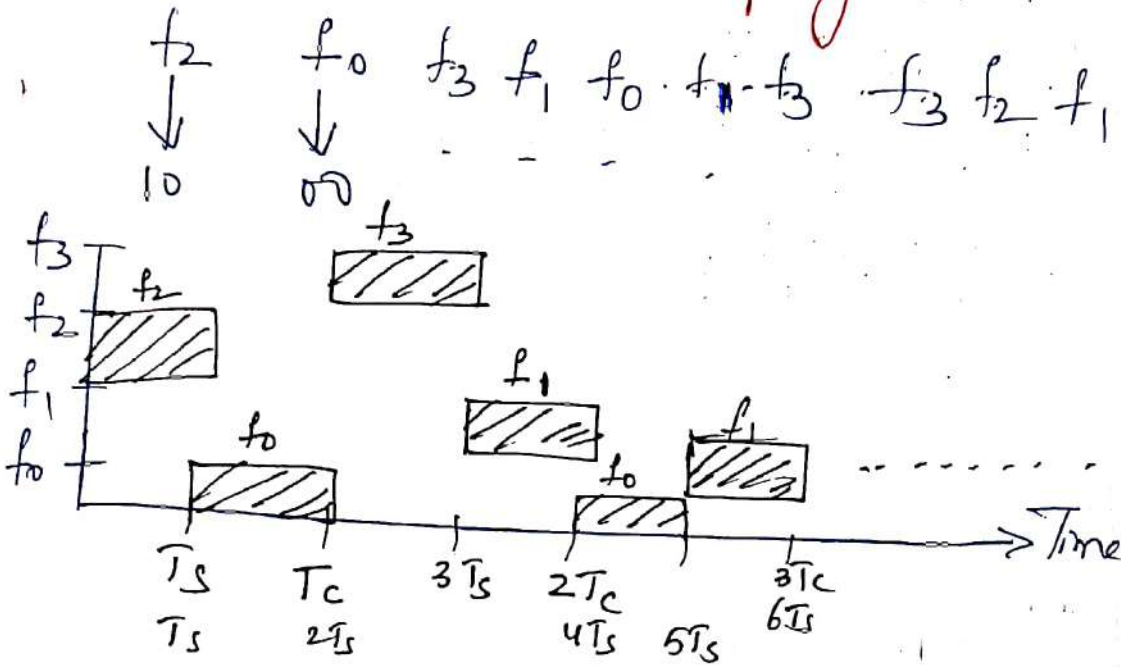 f2 f0 f3 f1 f0 f1 f3 f3 f2 f1
10 00
f3
f3
f2
f2
f1
f1
f0
f1
f0
f0
Time
Ts Tc 3Ts 2Tc 3Tc
Ts 2Ts 4Ts 5Ts 6Ts